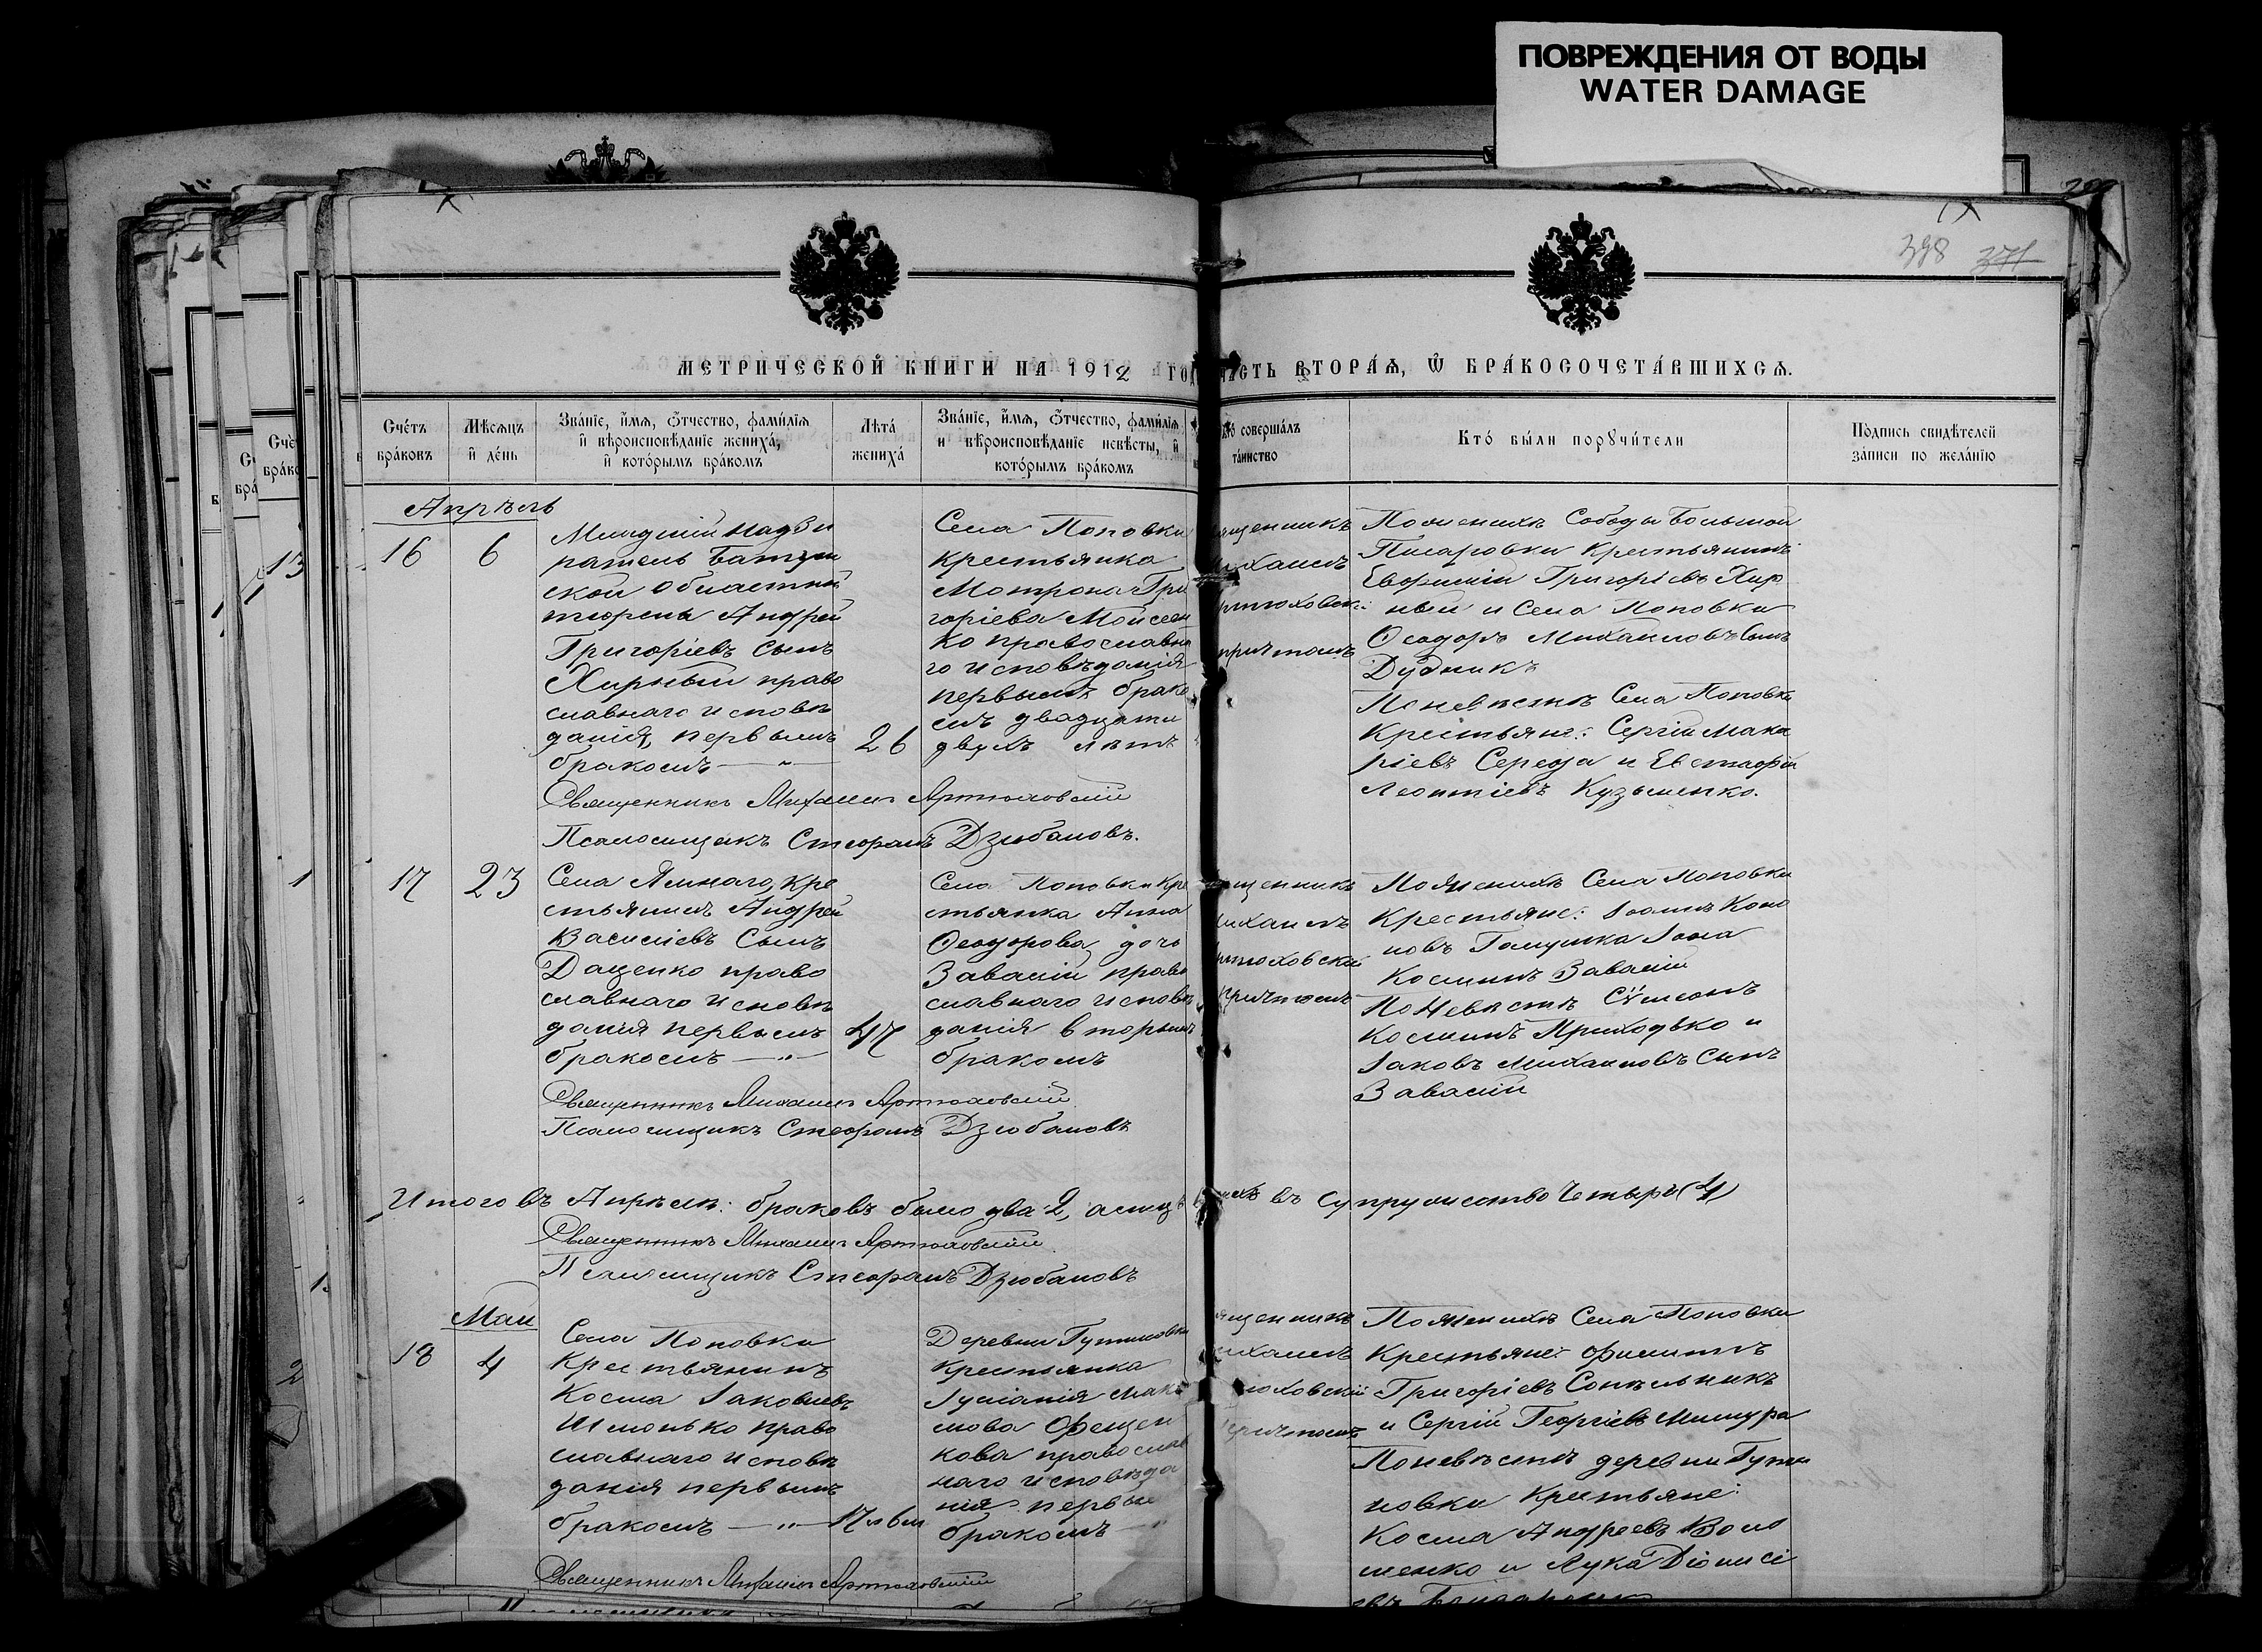 ПОВРЕЖДЕНИЯ ОТ ВОДЫ
WATER DAMAGE
398 371
МЕТРИЧЕСКОЙ КНИГИ НА 1912 ГОД
ЧАСТЬ ВТОРАЯ, Ѿ БРАКОСОЧЕТАВШИХСЯ.
Счетъ браковъ
Мѣсяцъ и день
Званіе, имя, отчество, фамилія
и вѣроисповѣданіе жениха,
и которымъ бракомъ
Лѣта
жениха
Званіе, имя, отчество, фамилія
и вѣроисповѣданіе невѣсты, и
которымъ бракомъ
совершалъ
таинство
Кто были поручители
Подпись свидѣтелей
записи по желанію
Апрѣль
16 6
Младшій надзи
ратель Батум
ской областной
тюрьмы Андрей
Григоріевъ сынъ
Хирный право
славнаго исповѣ
данія, первымъ
бракомъ
26
Села Поповки
крестьянка
Матрона Гри
горіева Моисеен
ко православна
го исповѣданія
первымъ брако
мъ двадцати
двухъ лѣтъ
По женихѣ Слободы Большой
Писаровки крестьянинъ
Григоріевъ Хир
ный и села Поповки
Ѳеодоръ Михаиловъ сынъ
Дудникъ
По невѣстѣ села Поповки
крестьяне: Сергій Мака
ріевъ Середа и Евстафій
Леонтіевъ Кузьменко.
Священникъ Михаилъ Артюховскій
Псаломщикъ Стефанъ Дзюбановъ.
17 23
Села Ямнаго, кре
стьянинъ Андрей
Василіевъ сынъ
Даценко право
славнаго исповѣ
данія первымъ
бракомъ
47
Села Поповки кре
стьянка Анна
Ѳеодорова дочь
Завасій право
славнаго исповѣ
данія вторымъ
бракомъ
По женихѣ села Поповки
крестьяне: Іоаннъ Коно
новъ
Косминъ Завасій
По невѣстѣ Сѵмеонъ
Косминъ Приходько и
Іаковъ Михаиловъ сынъ
Завасій
Священникъ Михаилъ Артюховскій
Псаломщикъ Стефанъ Дзюбановъ
Итого въ Апрѣлѣ: браковъ было два 2, а лицъ въ супружество четыре (4)
Священникъ Михаилъ Артюховскій
Псаломщикъ Стефанъ Дзюбановъ
Маи
18 4
Села Поповки
крестьянинъ
Косма Іаковлевъ
Шмонько право
славнаго исповѣ
данія первымъ
бракомъ
Деревни
крестьянка
Іуліанія Макси
мова Фещен
кова православ
наго исповѣда
нія первы
бракомъ
По женихѣ села Поповки
крестьяне: Филиппъ
Григоріевъ Сопѣльникъ
и Сергій Георгіевъ Мишура
По невѣстѣ деревни
крестьяне:
Косма Андреевъ Воло
шенко и Лука Діонисі
Священникъ Михаилъ Артюховскій